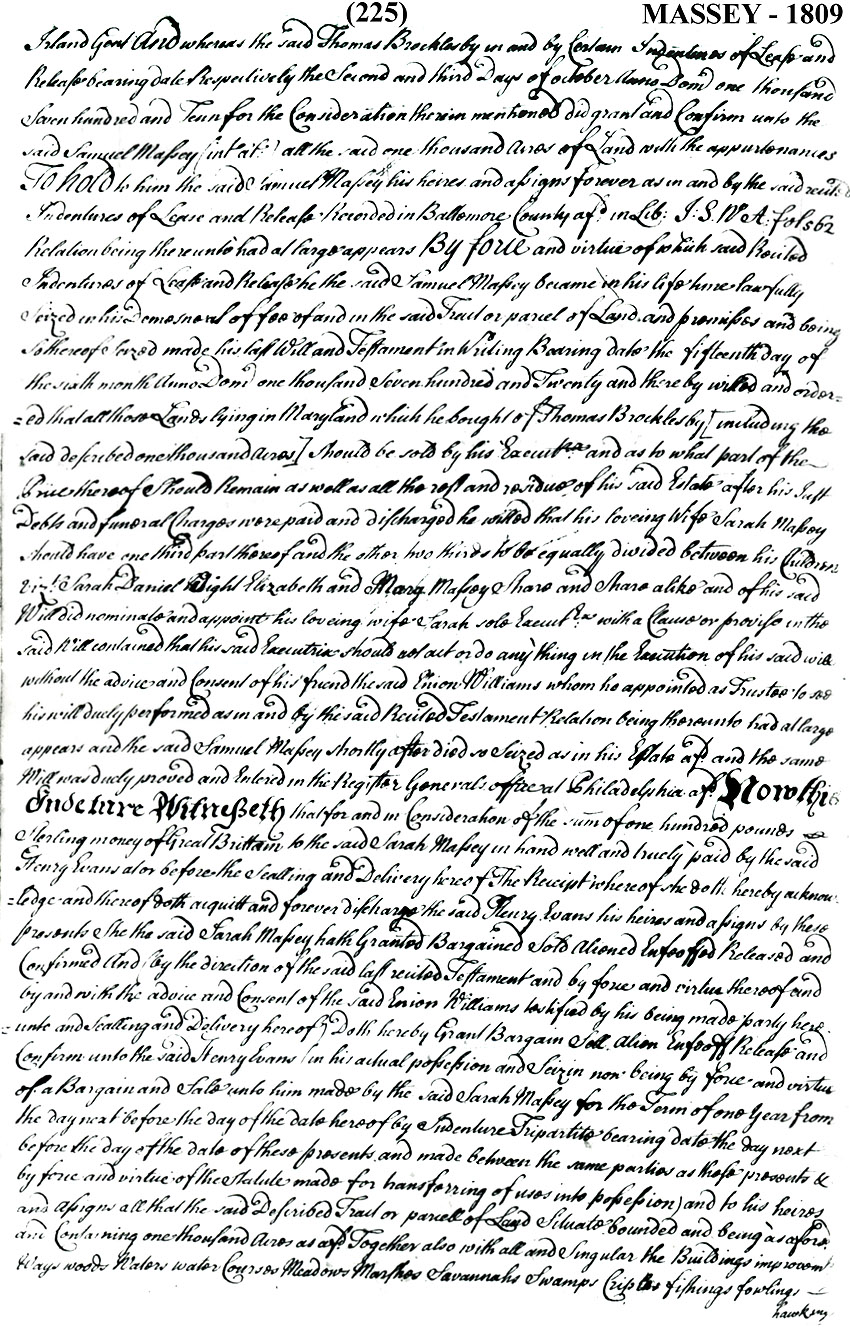 (225) MASSEY - 1809
Irland Gent And whereas the said Thomas Brocklesby in and by Certain Indentures of Lease and
Release bearing date Respectively the Second and third Days of october Anno Dom one thousand
Seven hundred and Tenn for the Consideration therein mentioned did grant and Confirm unto the
said Samuel Massey (int at) all the said one thousand Acres of Land with the appurtenances
To hold to him the said Samuel Massey his heires and assigns forever as in and by the said recited
Indentures of Lease and Release Recorded in Baltemore County afd. in Lib: I.S. No A. fol 562
Relation being thereunto had at large appears By force and virtue of which said Recited
Indentures of Lease and Release he the said Samuel Massey became in his life time lawfully
Seized in his Demesne as of fee of and in the said Tract or parcel of Land and premises and being
So thereof Seized made his last Will and Testament in Writing Bearing date the fifteenth day of
the sixth month Anno Dom one thousand Seven hundred and Twenty and thereby willed and order=
=ed that all those Lands lying in Maryland which he bought of Thomas Brocklesby [including the
said described one thousand Acres] Should be sold by his Executrx and as to what part of the
Price thereof Should Remain as well as all the rest and residue of his said Estate after his Just
Debts and funeral Charges were paid and discharged he willed that his loveing Wife Sarah Massey
should have one third part thereof and the other two thirds to be equally divided between his Children
vizt. Sarah Daniel Wight Elizabeth and Mary Massey Share and Share alike and of his said
Will did nominate and appoint his loveing wife Sarah sole Executrx with a Clause or proviso in the
said Will contained that his said Executrix should not act or do any thing in the Execution of his said will
without the advice and Consent of his friend the said Enion Williams whom he appointed as Trustee to see
his will duely performed as in and by the said Recited Testament Relation being thereunto had at large
appears and the said Samuel Massey shortly after died so Seized as in his Estate afd. and the same
Will was duely proved and Entered in the Register Generals office at Philadelphia afd. Now this
Indeture Witnesseth that for and in Consideration of the sum of one hundred pounds
Sterling money of Great Brittain to the said Sarah Massey in hand well and truely paid by the said
Henry Evans at or before the Sealling and Delivery hereof The Receipt whereof she doth hereby acknow
=ledge and thereof doth acquitt and forever discharge the said Henry Evans his heires and assigns by these
presents She the said Sarah Massey hath Granted Bargained Sold Aliened Enfeoffed Released and
Confirmed And (by the direction of the said last recited Testament and by force and virtue thereof and
by and with the advice and Consent of the said Enion Williams testified by his being made party here
=unto and Sealling and Delivery hereof) Doth hereby Grant Bargain Sell Alien Enfeoff Release and
Confirm unto the said Henry Evans (in his actual possession and Seizin now being by force and virtue
of a Bargain and Sale unto him made by the said Sarah Massey for the Term of one Year from
the day next before the day of the date hereof by Indenture Tripartite bearing date the day next
before the day of the date of these presents and made between the same parties as these presents &
by force and virtue of the Statute made for transferring of uses into possession) and to his heires
and Assigns all that the said Described Tract or parcell of Land Situate bounded and being as afore
and Containing one thousand Acres as afd. Together also with all and Singular the Buildings improvemt
Ways woods Waters water Courses Meadows Marshes Savannahs Swamps Criples fishings fowlings
hawking